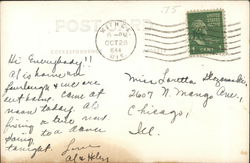 .75
POST CARD
OCT 28
1944
WIS.
1 CENT 1
Hi Everybody!!
Al is home on
furlough & we are
out home. Came at
noon today. Al
a new
going to a dance
tonight.
Love
Al & Helen
Miss Loretta
2607 N. Mango Ave,
Chicago,
Ill.